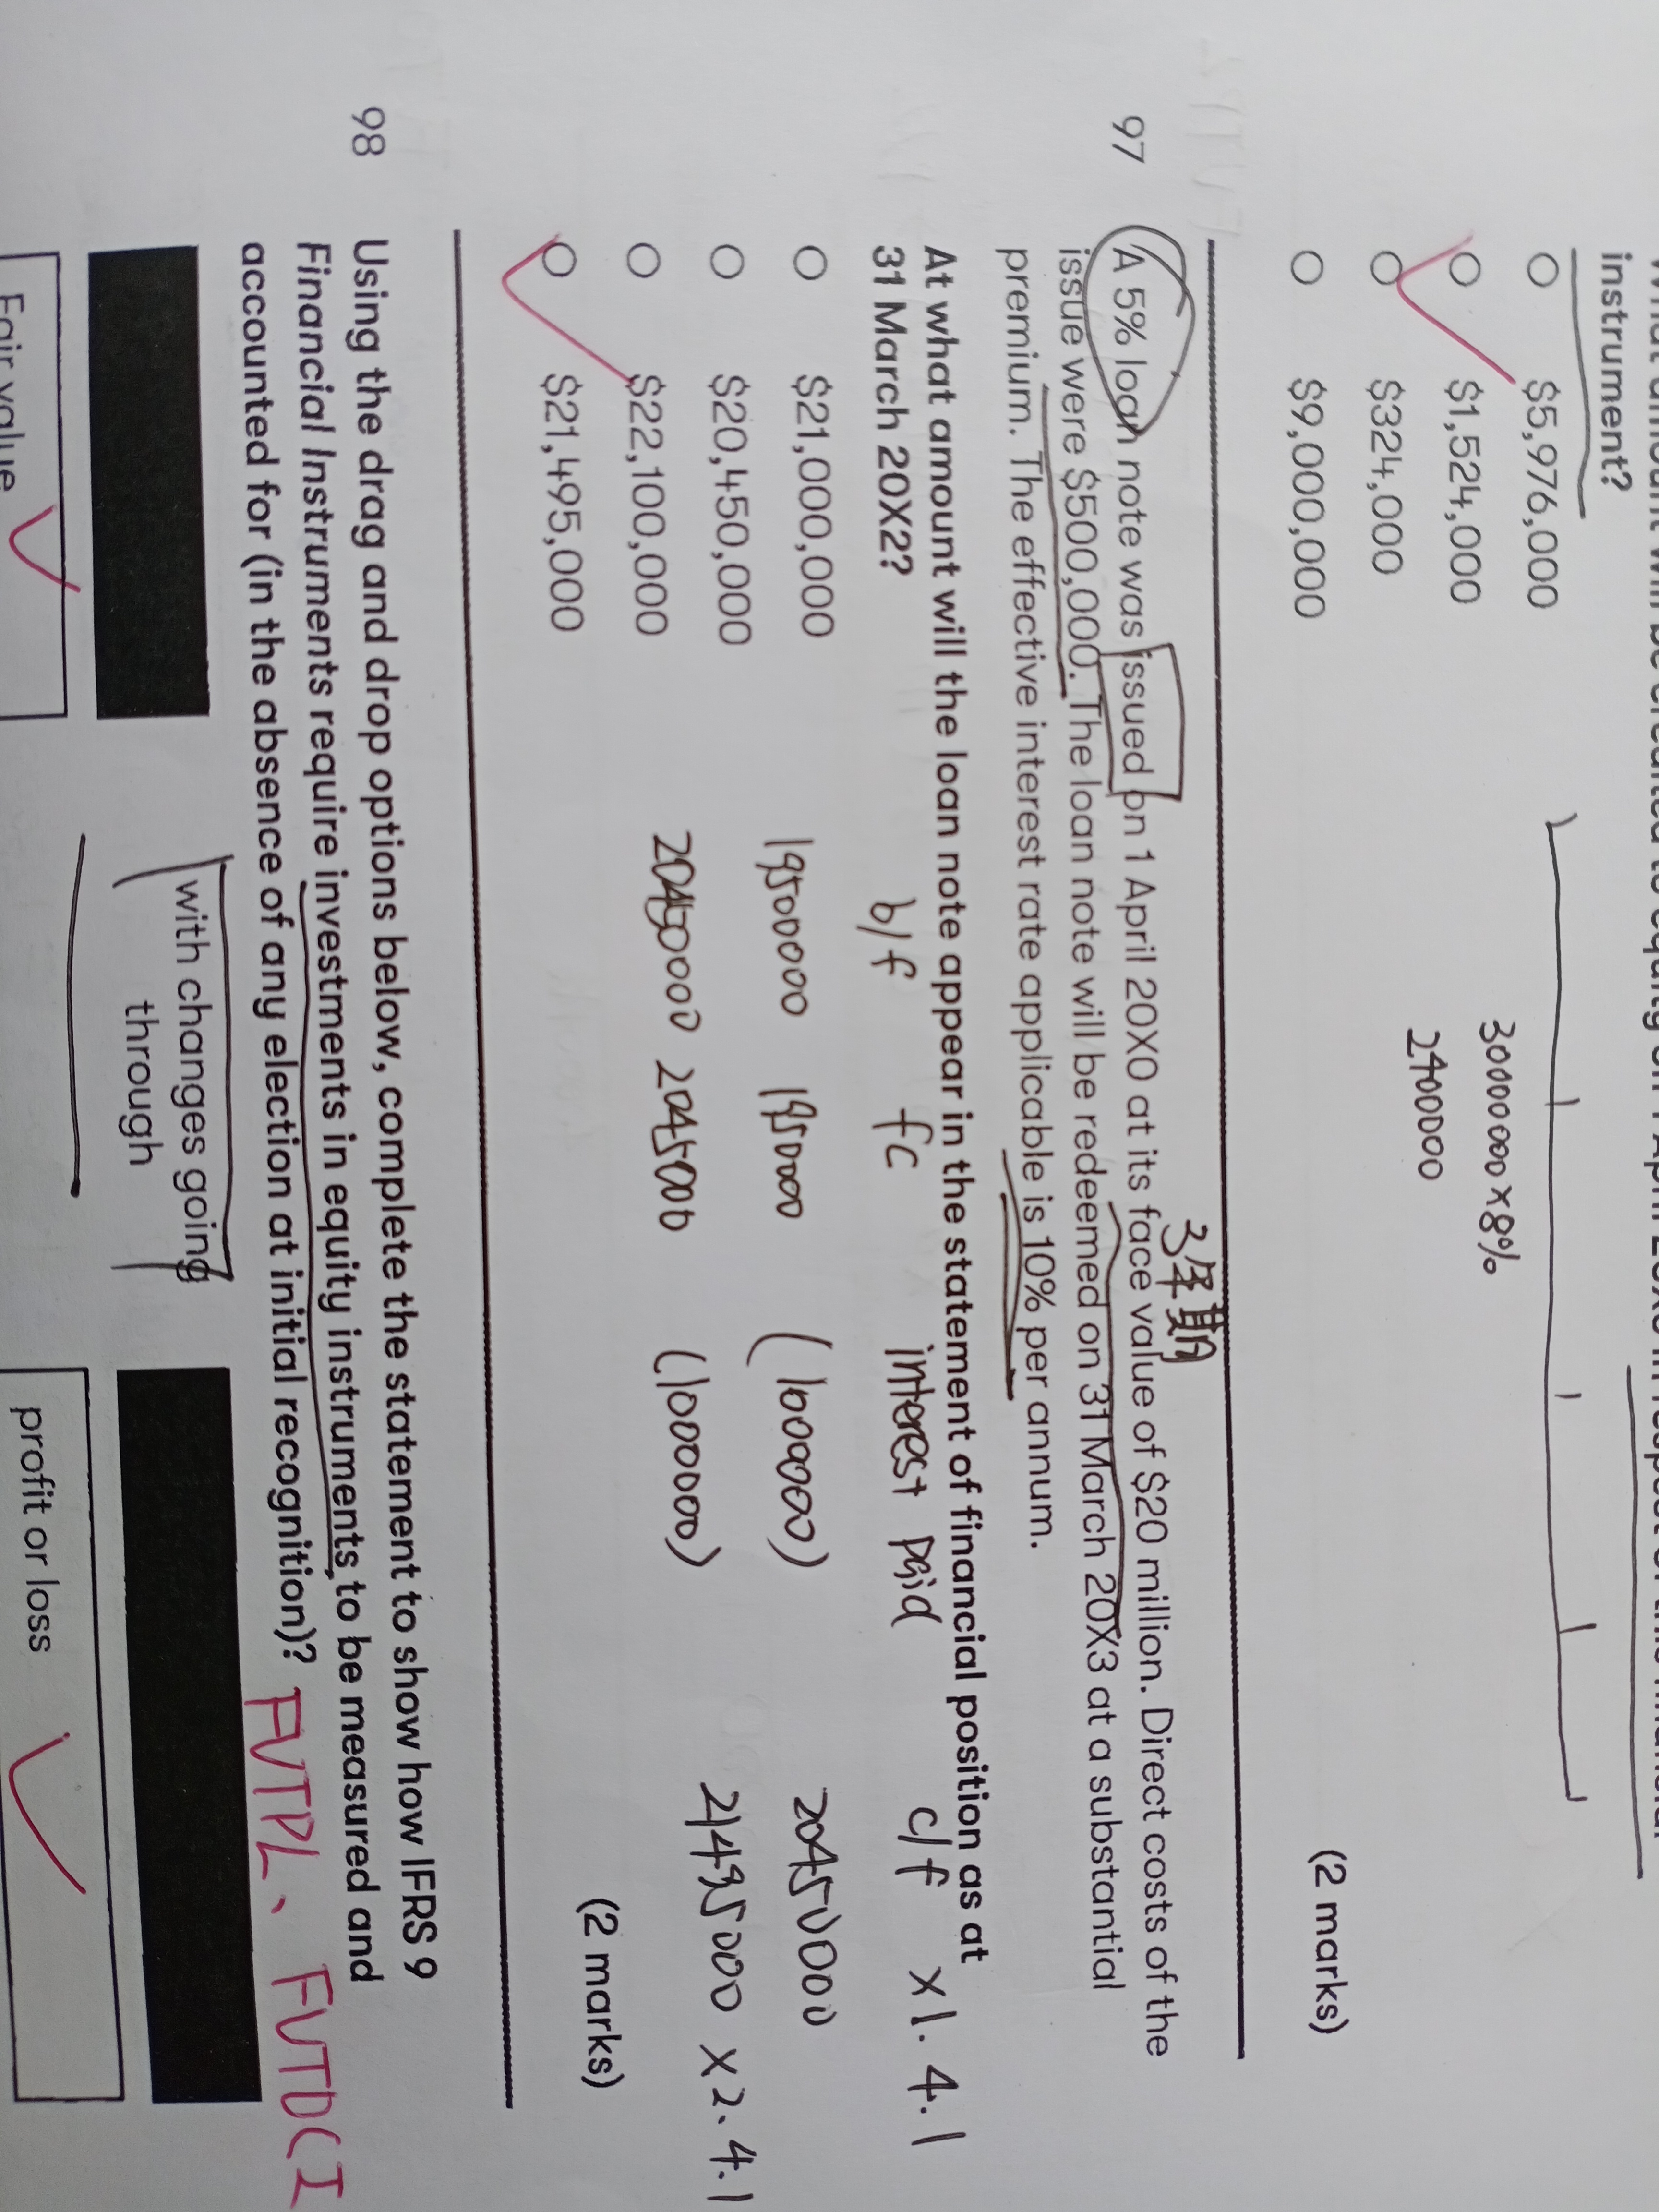 instrument?
$5,976,000
$1,524,000
$324,000
$9,000,000
30000000×8%
2400000
(2 marks)
3年期
97 A 5% loan note was issued on 1 April 20X0 at its face value of $20 million. Direct costs of the
issue were $500,000. The loan note will be redeemed on 31 March 20X3 at a substantial
premium. The effective interest rate applicable is 10% per annum.
At what amount will the loan note appear in the statement of financial position as at
31 March 20X2?
b/f fc interest paid c/f ×1.4.1
$21,000,000
$20,450,000
$22,100,000
$21,495,000
19500000 195000 (100000) 20450000
20450000 204500 (100000) 21495000 ×2.4.1
(2 marks)
98 Using the drag and drop options below, complete the statement to show how IFRS 9
Financial Instruments require investments in equity instruments to be measured and
accounted for (in the absence of any election at initial recognition)? FVTPL、FVTOCI
with changes going
through
Fair value
profit or loss